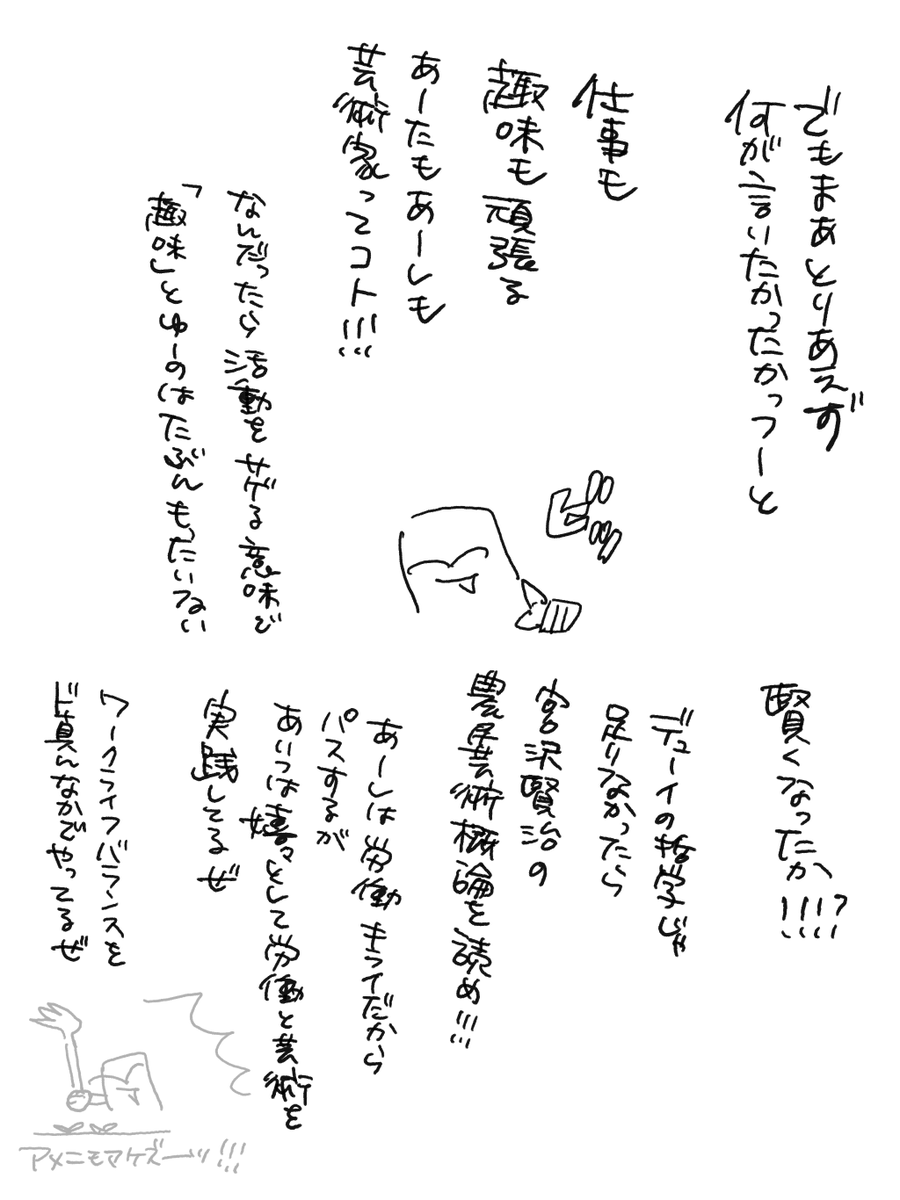 でもまあとりあえず
何が言いたかったかっつーと
仕事も
趣味も頑張る
あーたもあーしも
芸術家ってコト!!!
なんだったら活動をサゲる意味で
「趣味」とゆーのはたぶんもったいない
ビッ
賢くなったか!!!?
デューイの哲学じゃ
足りなかったら
宮沢賢治の
農民芸術概論を読め!!!
あーしは労働キライだから
パスするが
あいつは嬉々として労働と芸術を
実践してるぜ
ワークライフバランスを
ド真んなかでやってるぜ
アメニモマケズーッ!!!